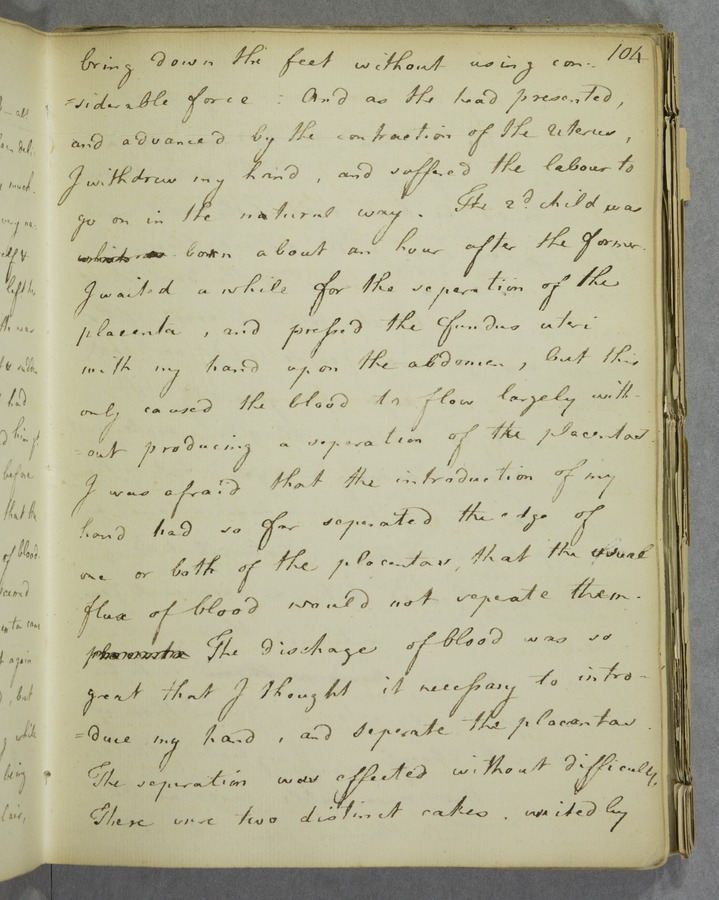 104
bring down the feet without using con-
=siderable force : And as the head presented,
and advanced by the contraction of the uterus,
I withdrew my hand, and suffered the labour to
go on in the natural way. The 2d. child was
born about an hour after the former.
I waited a while for the seperation of the
placenta, and pressed the fundus uteri
with my hand upon the abdomen, but this
only caused the blood to flow largely with-
=out producing a seperation of the placentas.
I was afraid that the introduction of my
hand had so far seperated the edge of
one or both of the placentas, that the usual
flux of blood would not seperate them.
The discharge of blood was so
great that I thought it necessary to intro-
=duce my hand, and seperate the placentas.
The seperation was effected without difficulty.
There were two distinct cakes, united by